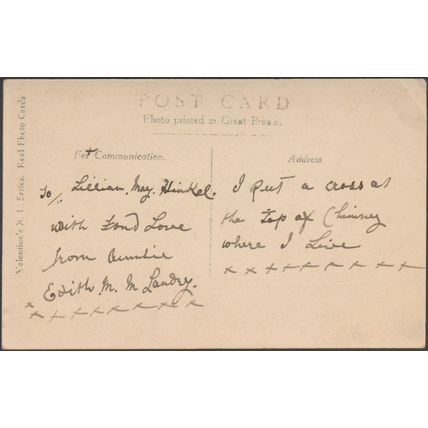 POST CARD
Photo printed in Great Britain.
For Communication.
To/. Lillian. May. Hinkel.
with Fond Love
from Auntie
Edith. M. M Landry.
x x x x x x x x x x
Address
I Put a cross at
the top of Chimney
where I Live
x x x x x x x x x
Valentine's X. L. Series. Real Photo Cards